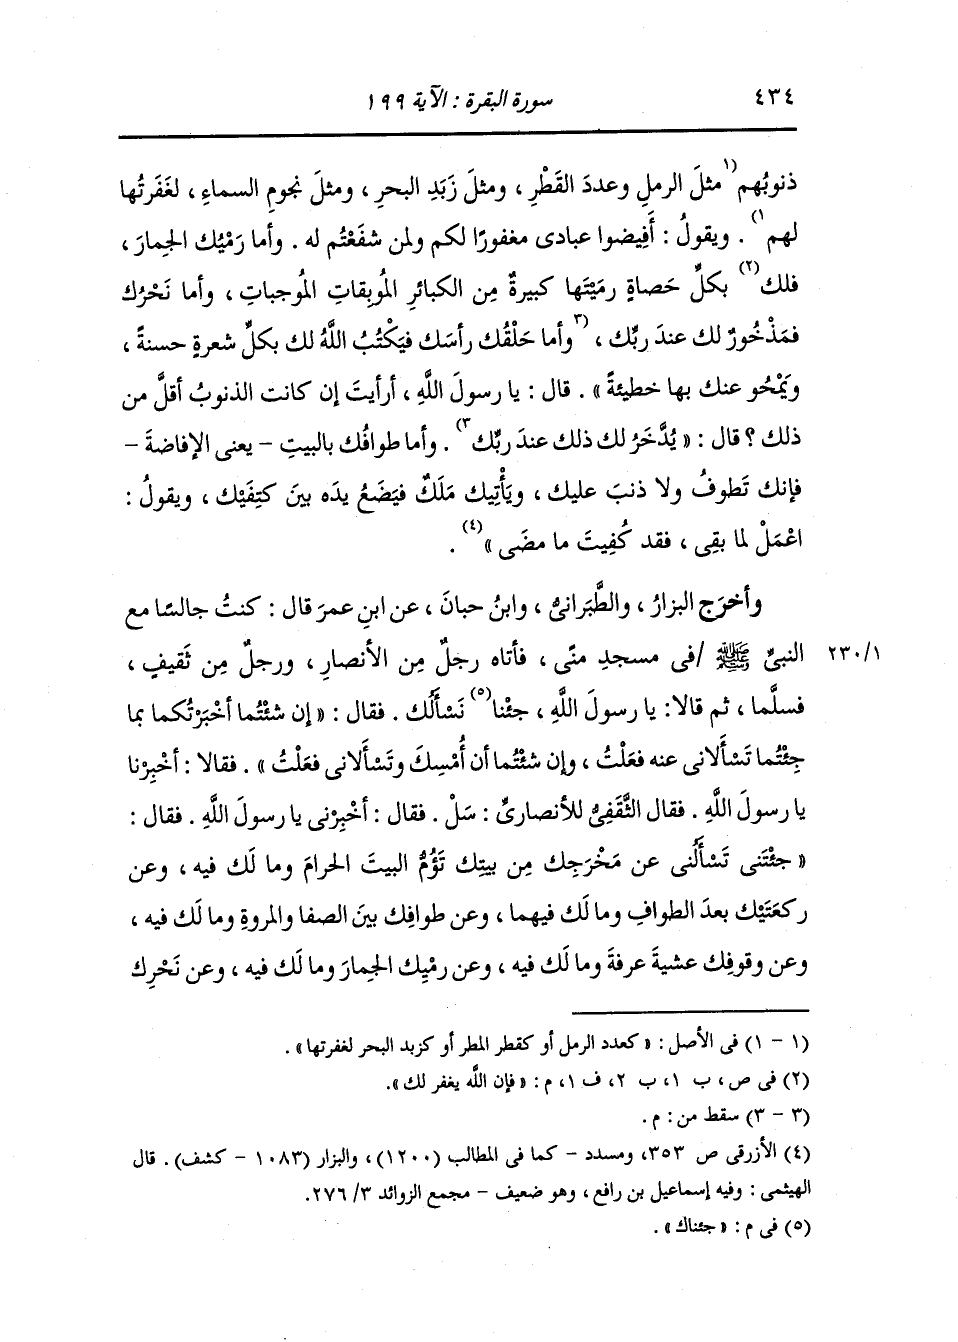 ٤٣٤
سورة البقرة : الآية ١٩٩
ذنوبُهم(١ مثلَ الرملِ وعددَ القَطْرِ ، ومثلَ زَبَدِ البحرِ ، ومثلَ نجومِ السماءِ ، لغَفَرتُها
لهم١) . ويقولُ : أَفِيضوا عبادى مغفورًا لكم ولمن شفَعْتُم له . وأما رَمْيُك الجِمارَ ،
فلك(٢) بكلِّ حَصاةٍ رمَيْتَها كبيرةٌ مِن الكبائرِ المُوبِقاتِ المُوجباتِ ، وأما نَحْرُك
فمَذْخُورٌ لك عندَ ربِّك ، (٣وأما حَلْقُك رأسَك فيَكْتُبُ اللَّهُ لك بكلِّ شعرةٍ حسنةً ،
ويَمْحُو عنك بها خطيئةً » . قال : يا رسولَ اللَّهِ ، أرأيتَ إن كانت الذنوبُ أقلَّ من
ذلك ؟ قال : « يُدَّخَرُ لك ذلك عندَ ربِّك٣) . وأما طوافُك بالبيتِ - يعنى الإفاضةَ -
فإنك تَطوفُ ولا ذنبَ عليك ، ويَأْتِيك مَلَكٌ فيَضَعُ يدَه بينَ كتِفَيْك ، ويقولُ :
اعْمَلْ لما بقِى ، فقد كُفِيتَ ما مضَى »(٤) .
وأخرَج البزارُ ، والطَّبَرانىُّ ، وابنُ حبانَ ، عن ابنِ عمرَ قال : كنتُ جالسًا مع
النبىِّ ﷺ /فى مسجدِ منًى ، فأتاه رجلٌ مِن الأنصارِ ، ورجلٌ مِن ثَقيفٍ ،
٢٣٠/١
فسلَّما ، ثم قالا: يا رسولَ اللَّهِ ، جئْنا(٥) نَسْأَلُك . فقال : « إن شئْتُما أخبَرْتُكما بما
جِئْتُما تَسْأَلانى عنه فعَلْتُ ، وإن شئْتُما أن أُمْسِكَ وتَسْأَلانى فعَلْتُ » . فقالا : أخْبِرْنا
يا رسولَ اللَّهِ . فقال الثَّقَفِىُّ للأنصارىِّ : سَلْ . فقال : أخْبِرْنى يا رسولَ اللَّهِ . فقال :
« جئْتَنى تَسْأَلُنى عن مَخْرَجِك مِن بيتِك تَؤُمُّ البيتَ الحرامَ وما لَك فيه ، وعن
ركعَتَيْك بعدَ الطوافِ وما لَك فيهما ، وعن طوافِك بينَ الصفا والمروةِ وما لَك فيه ،
وعن وقوفِك عشيةَ عرفةَ وما لَك فيه ، وعن رمْيِك الجمارَ وما لَك فيه ، وعن نَحْرِك
(١ - ١) فى الأصل : « كعدد الرمل أو كقطر المطر أو كزبد البحر لغفرتها» .
(٢) فى ص، ب ١، ب ٢، ف ١، م : « فإن اللَّه يغفر لك».
(٣ - ٣) سقط من : م .
(٤) الأزرقى ص ٣٥٣، ومسدد - كما فى المطالب (١٢٠٠) ، والبزار (١٠٨٣ - كشف) . قال
الهيثمى : وفيه إسماعيل بن رافع ، وهو ضعيف - مجمع الزوائد ٣/ ٢٧٦.
(٥) فى م : « جئناك » .